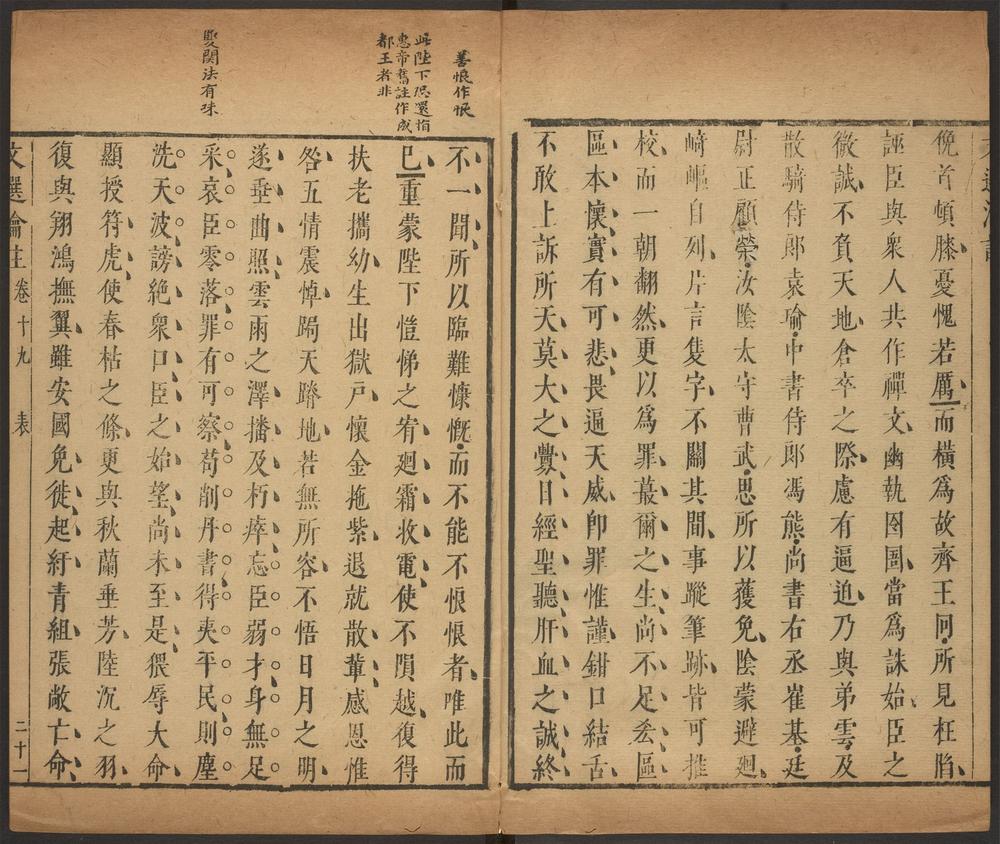 俛首頓膝憂愧若厲而橫爲故齊王冏所見枉陷
誣臣與衆人共作禪文幽執囹圄當爲誅始臣之
微誠不負天地倉卒之際慮有逼迫乃與弟雲及
散騎侍郎袁瑜中書侍郎馮熊尚書右丞崔基廷
尉正顧榮汝陰太守曹武思所以獲免陰蒙避廻
崎嶇自列片言隻字不關其間事蹤筆跡皆可推
校而一朝翻然更以爲罪蕞爾之生尚不足𠫤區
區本懷實有可悲畏逼天威卽罪惟謹鉗口結舌
不敢上訴所天莫大之釁日經聖聽肝血之誠終
善恨作恨
此陛下堲還指
惠帝舊註作成
都王者非
雙關法有味
不一聞所以臨難慷慨而不能不恨恨者唯此而
巳重蒙陛下愷悌之宥廻霜收電使不隕越復得
扶老攜幼生出獄戶懷金拖紫退就散輩感恩惟
咎五情震悼跼天蹐地若無所容不悟日月之明
遂垂曲照雲雨之澤播及朽瘁忘臣弱才身無足
采哀臣零落罪有可察苟削丹書得夷平民則塵
洗天波謗絶衆口臣之始望尚未至是猥辱大命
顯授符虎使春枯之條更與秋蘭垂芳陸沉之羽
復與翔鴻撫翼雖安國免徙起紆青組張敞亡命
文選瀹註 卷十九 表 二十一